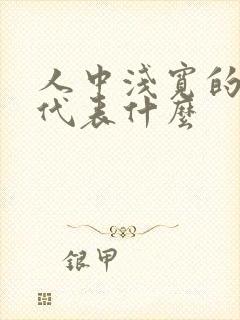 人中淺寬的
代表什麼
銀甲